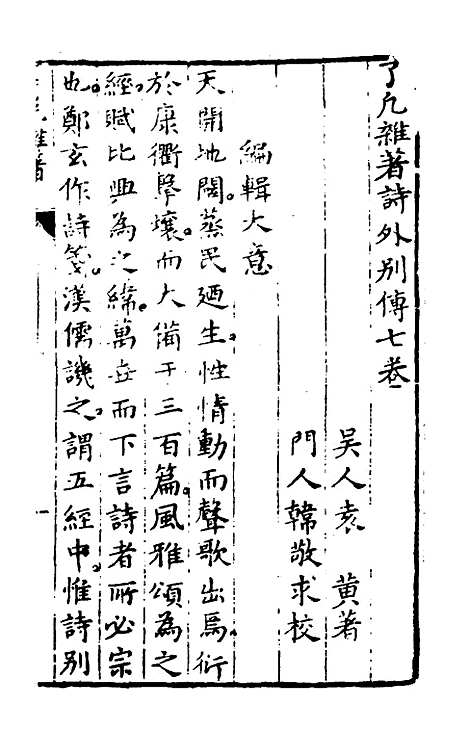 了凡雜著詩外別傳七卷
吳人袁 黃著
門人韓敬求校
編輯大意
天開地闢蒸民廼生性情動而聲歌出焉衍
於康衢擊壤而大備于三百篇風雅頌為之
經賦比興為之緯萬世而下言詩者所必宗
也鄭玄作詩箋漢儒譏之謂五經中惟詩別